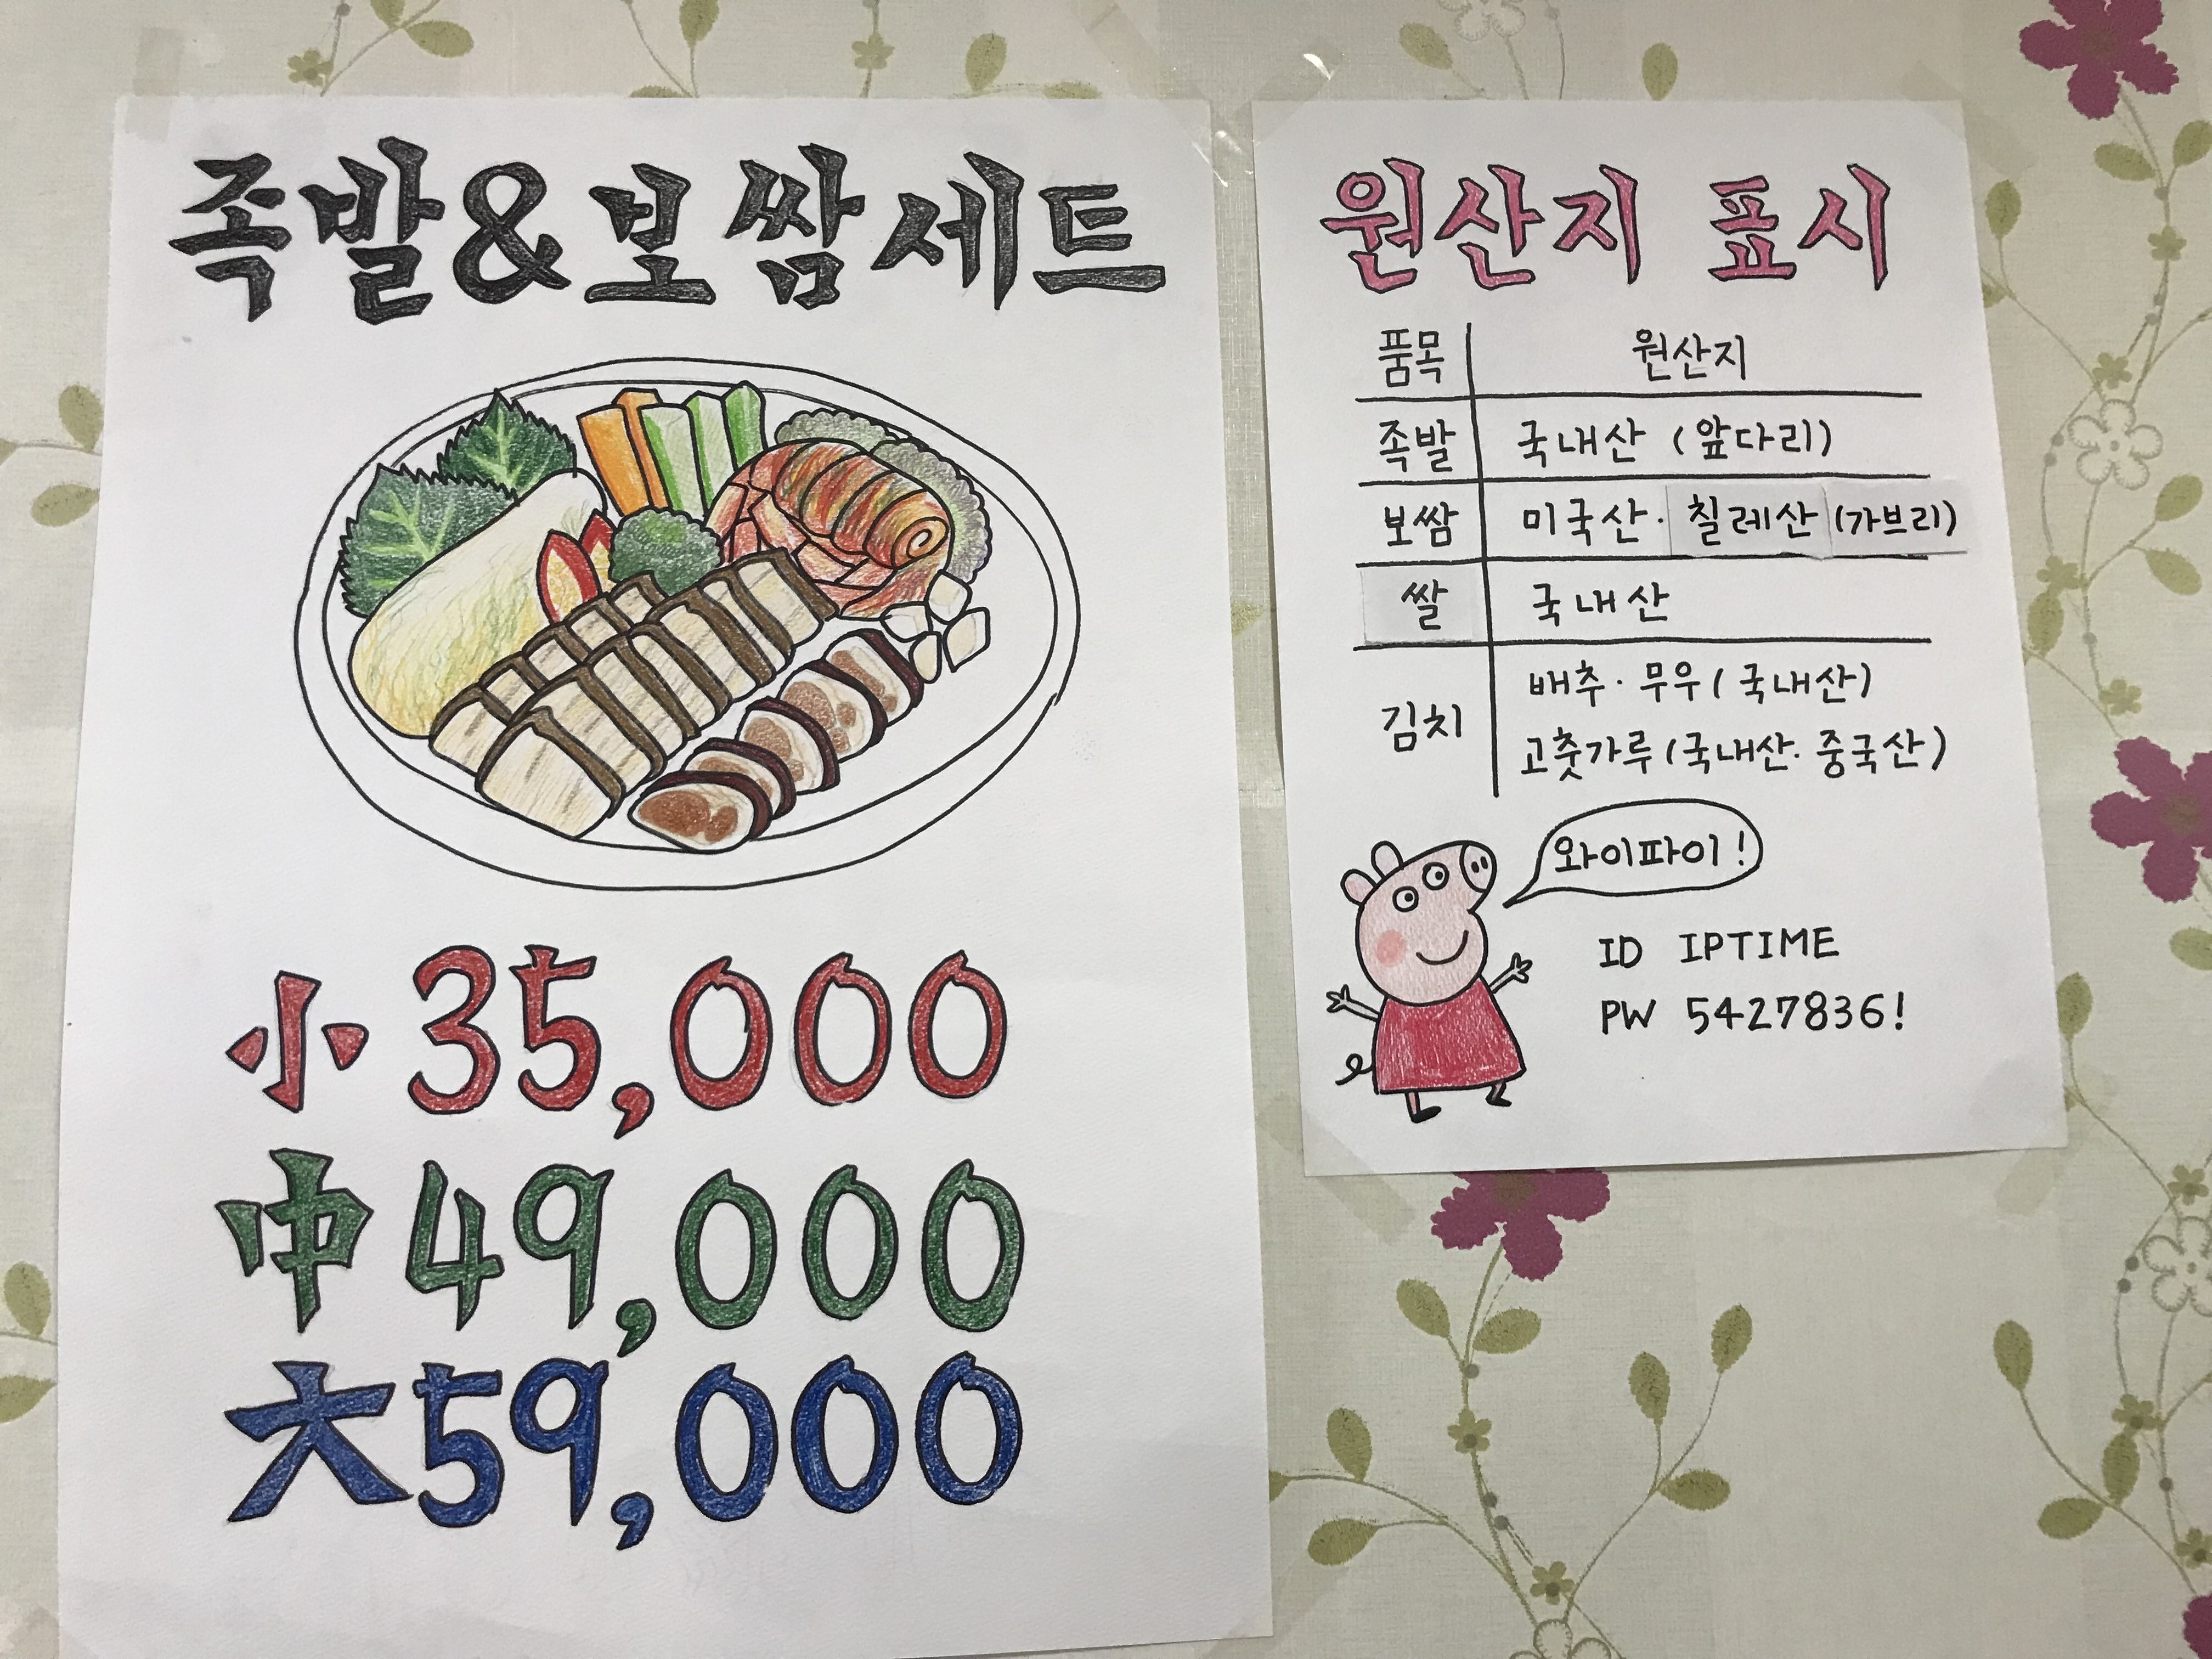 족발&보쌈세트
小 35,000
中 49,000
大 59,000
원산지 표시
품목 원산지
족발 국내산 (앞다리)
보쌈 미국산·칠레산 (가브리)
쌀 국내산
김치 배추·무우(국내산)
고춧가루(국내산·중국산)
와이파이!
ID IPTIME
PW 5427836!